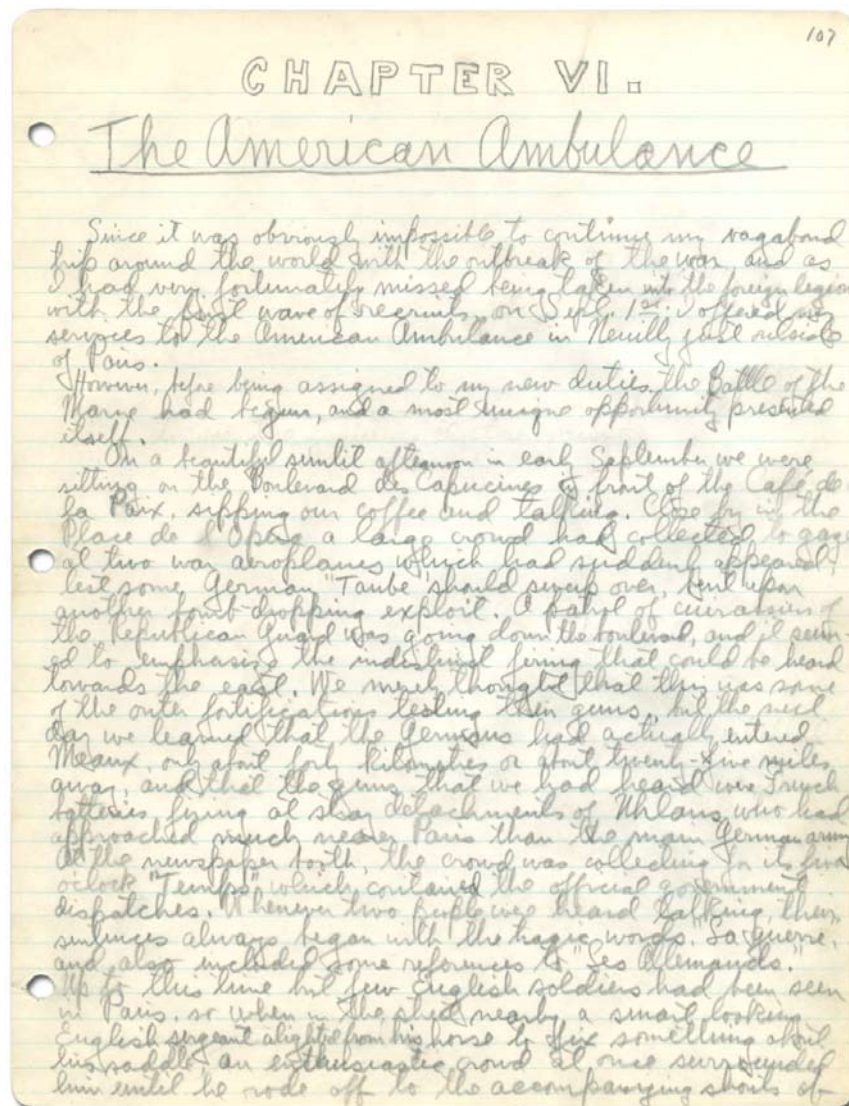 107
CHAPTER VI.
The American Ambulance
Since it was obviously impossible to continue my vagabond
trip around the world with the outbreak of the war and as
I had very fortunately missed being taken into the foreign legion
with the first wave of recruits, on Sept. 1st. I offered my
services to the American Ambulance in Neuilly just outside
of Paris.
However, before being assigned to my new duties, the Battle of the
Marne had begun, and a most unique opportunity presented
itself.
On a beautiful sunlit afternoon in early September we were
sitting on the Boulevard des Capucines in front of the Café de
la Paix, sipping our coffee and talking. Close by in the
Place de l'Opéra a large crowd had collected to gaze
at two war aeroplanes which had suddenly appeared,
lest some German "Taube" should swoop over, bent upon
another bomb-dropping exploit. A patrol of cuirassiers of
the Republican Guard was going down the boulevard, and it seem-
ed to emphasize the indistinct firing that could be heard
towards the east. We merely thought that this was some
of the outer fortifications testing their guns, but the next
day we learned that the Germans had actually entered
Meaux, only about forty kilometres or about twenty-five miles
away, and that the guns that we had heard were French
batteries firing at stray detachments of Uhlans, who had
approached much nearer Paris than the main German army.
At the newspaper booth, the crowd was collecting for its five
oclock "Temps" which contained the official government
dispatches. Whenever two people were heard talking, their
sentences always began with the tragic words, "La guerre,"
and also included some references to "Les Allemands."
Up to this time but few English soldiers had been seen
in Paris, so when in the street nearby a smart looking
English sergeant alighted from his horse to fix something about
his saddle, an enthusiastic crowd at once surrounded
him until he rode off to the accompanying shouts of